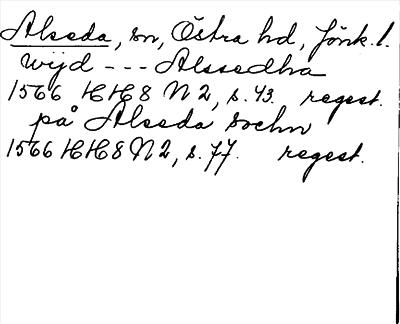 Alseda, sn, Östra hd, Jönk. l.
wijd --- Alssedha
1566 HH8 N 2, s. 43. regest.
på Alseda sochn
1566 HH8 N 2, s. 77. regest.